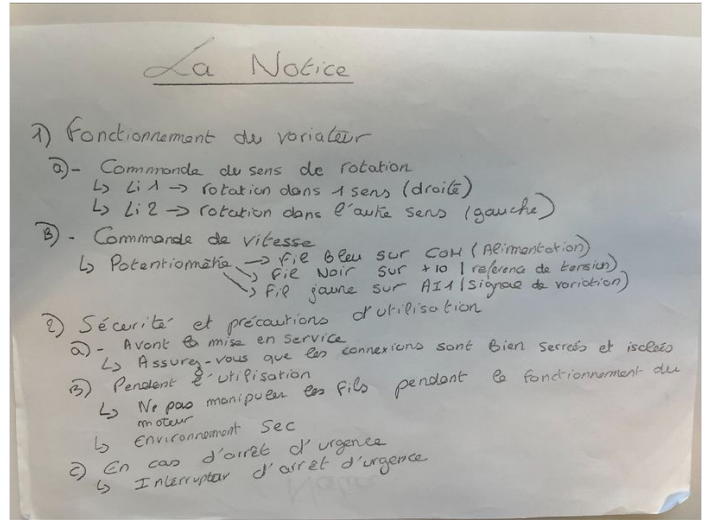 La Notice
1) Fonctionnement du variateur
a)- Commande du sens de rotation
↳ Li 1 → rotation dans 1 sens (droite)
↳ Li 2 → rotation dans l'autre sens (gauche)
B) - Commande de vitesse
↳ Potentiomètre → fil Bleu sur COM (Alimentation)
↘ fil Noir sur +10 (reference de tension)
↘ fil jaune sur AI1 (signal de variation)
2) Sécurité et précautions d'utilisation
a)- Avant la mise en service
↳ Assurez-vous que les connexions sont bien serrées et isolées
B) Pendant l'utilisation
↳ Ne pas manipuler les fils pendant le fonctionnement du
moteur
↳ Environnement Sec
c) En cas d'arrêt d'urgence
↳ Interruptar d'arrêt d'urgence